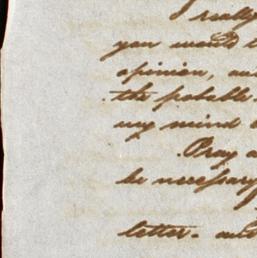 I really
you would
opinion, an
the probable
my mind
Pray
be necessary
letter - and